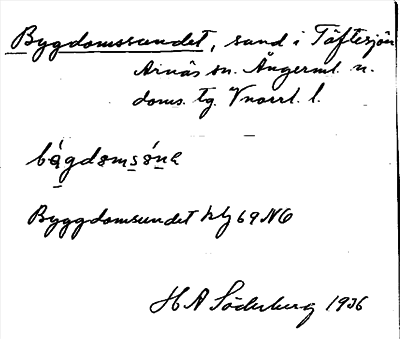 Bygdomssundet, sund i Täftesjön
Arnäs sn. Ångerml. n.
doms. tg. Vnorrl. l.
Byggdomsundet kbg 69 NO
H A Söderberg 1936